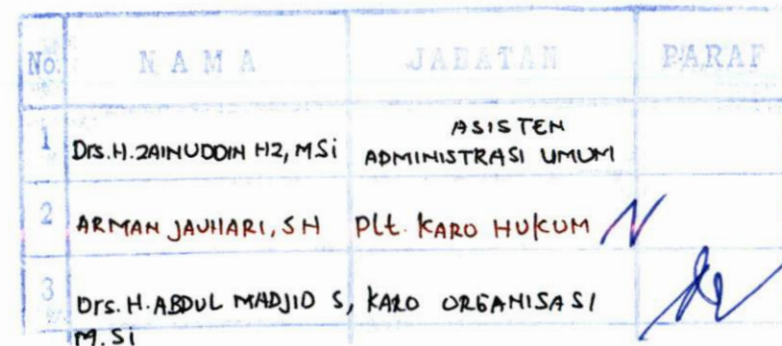 No. NAMA JABATAN PARAF
1 Drs.H.ZAINUDDIN HZ, MSi ASISTEN
ADMINISTRASI UMUM
2 ARMAN JAUHARI, SH Plt. KARO HUKUM
3 Drs. H. ABDUL MADJID S, KARO ORGANISASI
M.Si